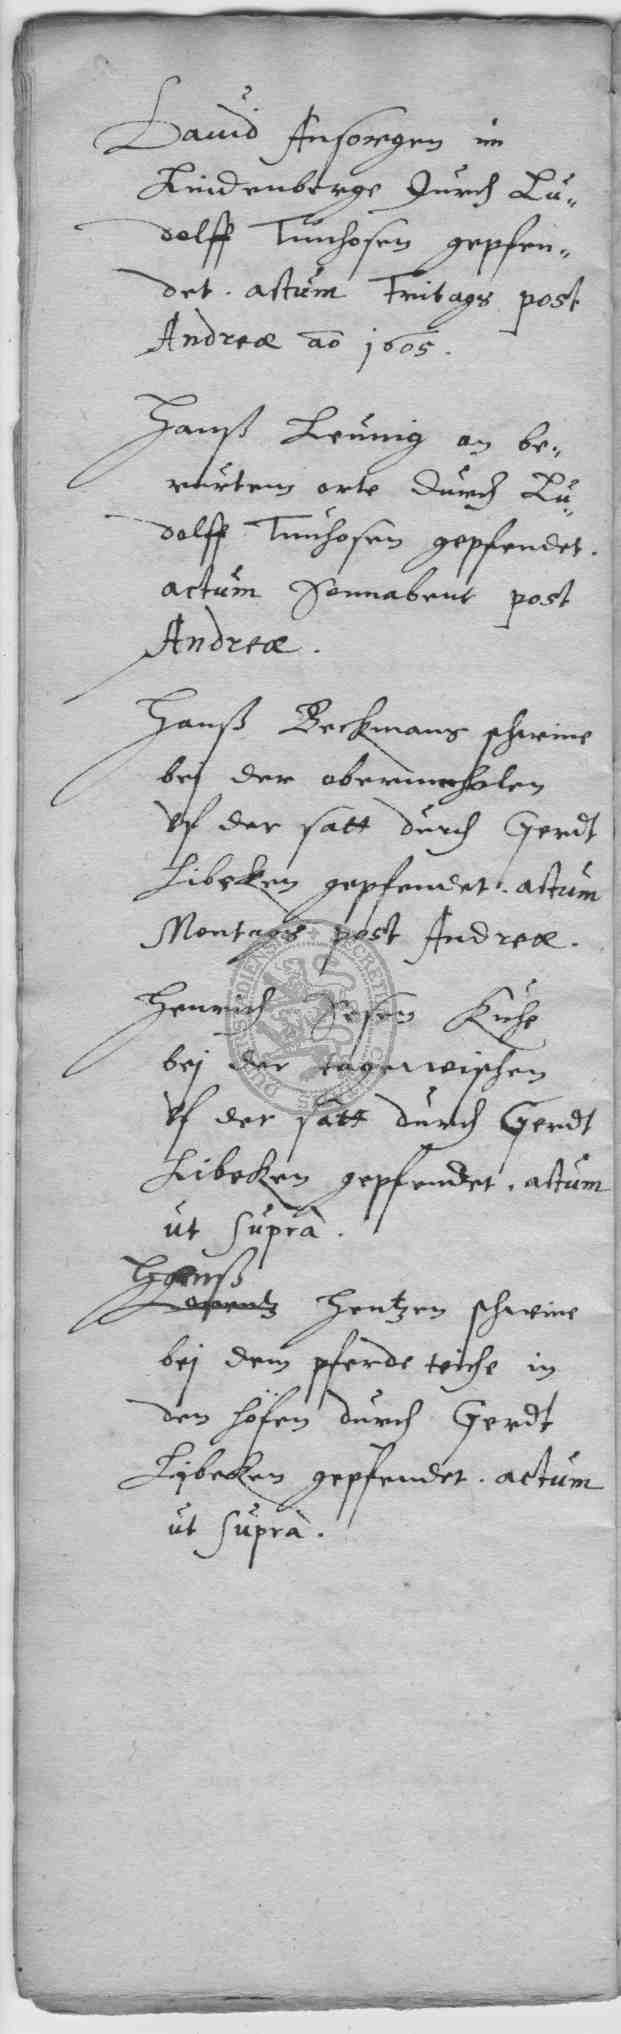 Dauid Ansorgen im
Lindenberge durch Lu„
dolff Tunhosen gepfen„
det. actum Fritags post
Andreæ ao 1605.
Hanß Leunig an be„
rurtem orte durch Lu„
dolff Tunhosen gepfendet.
actum Sonnabent post
Andreæ.
Hanß Beckmans schweine
bei der obermuhlen
vf der satt durch Gerdt
Libeken gepfendet. actum
Montags post Andreæ.
Henrich Kuhe
bej der wischen
vf der satt durch Gerdt
Libeken gepfendet. actum
ut suprà.
Hanß
Lorentz Hentzen schweine
bej dem pferde teiche in
den höfen durch Gerdt
Lybeken gepfendet. actum
ut suprà.